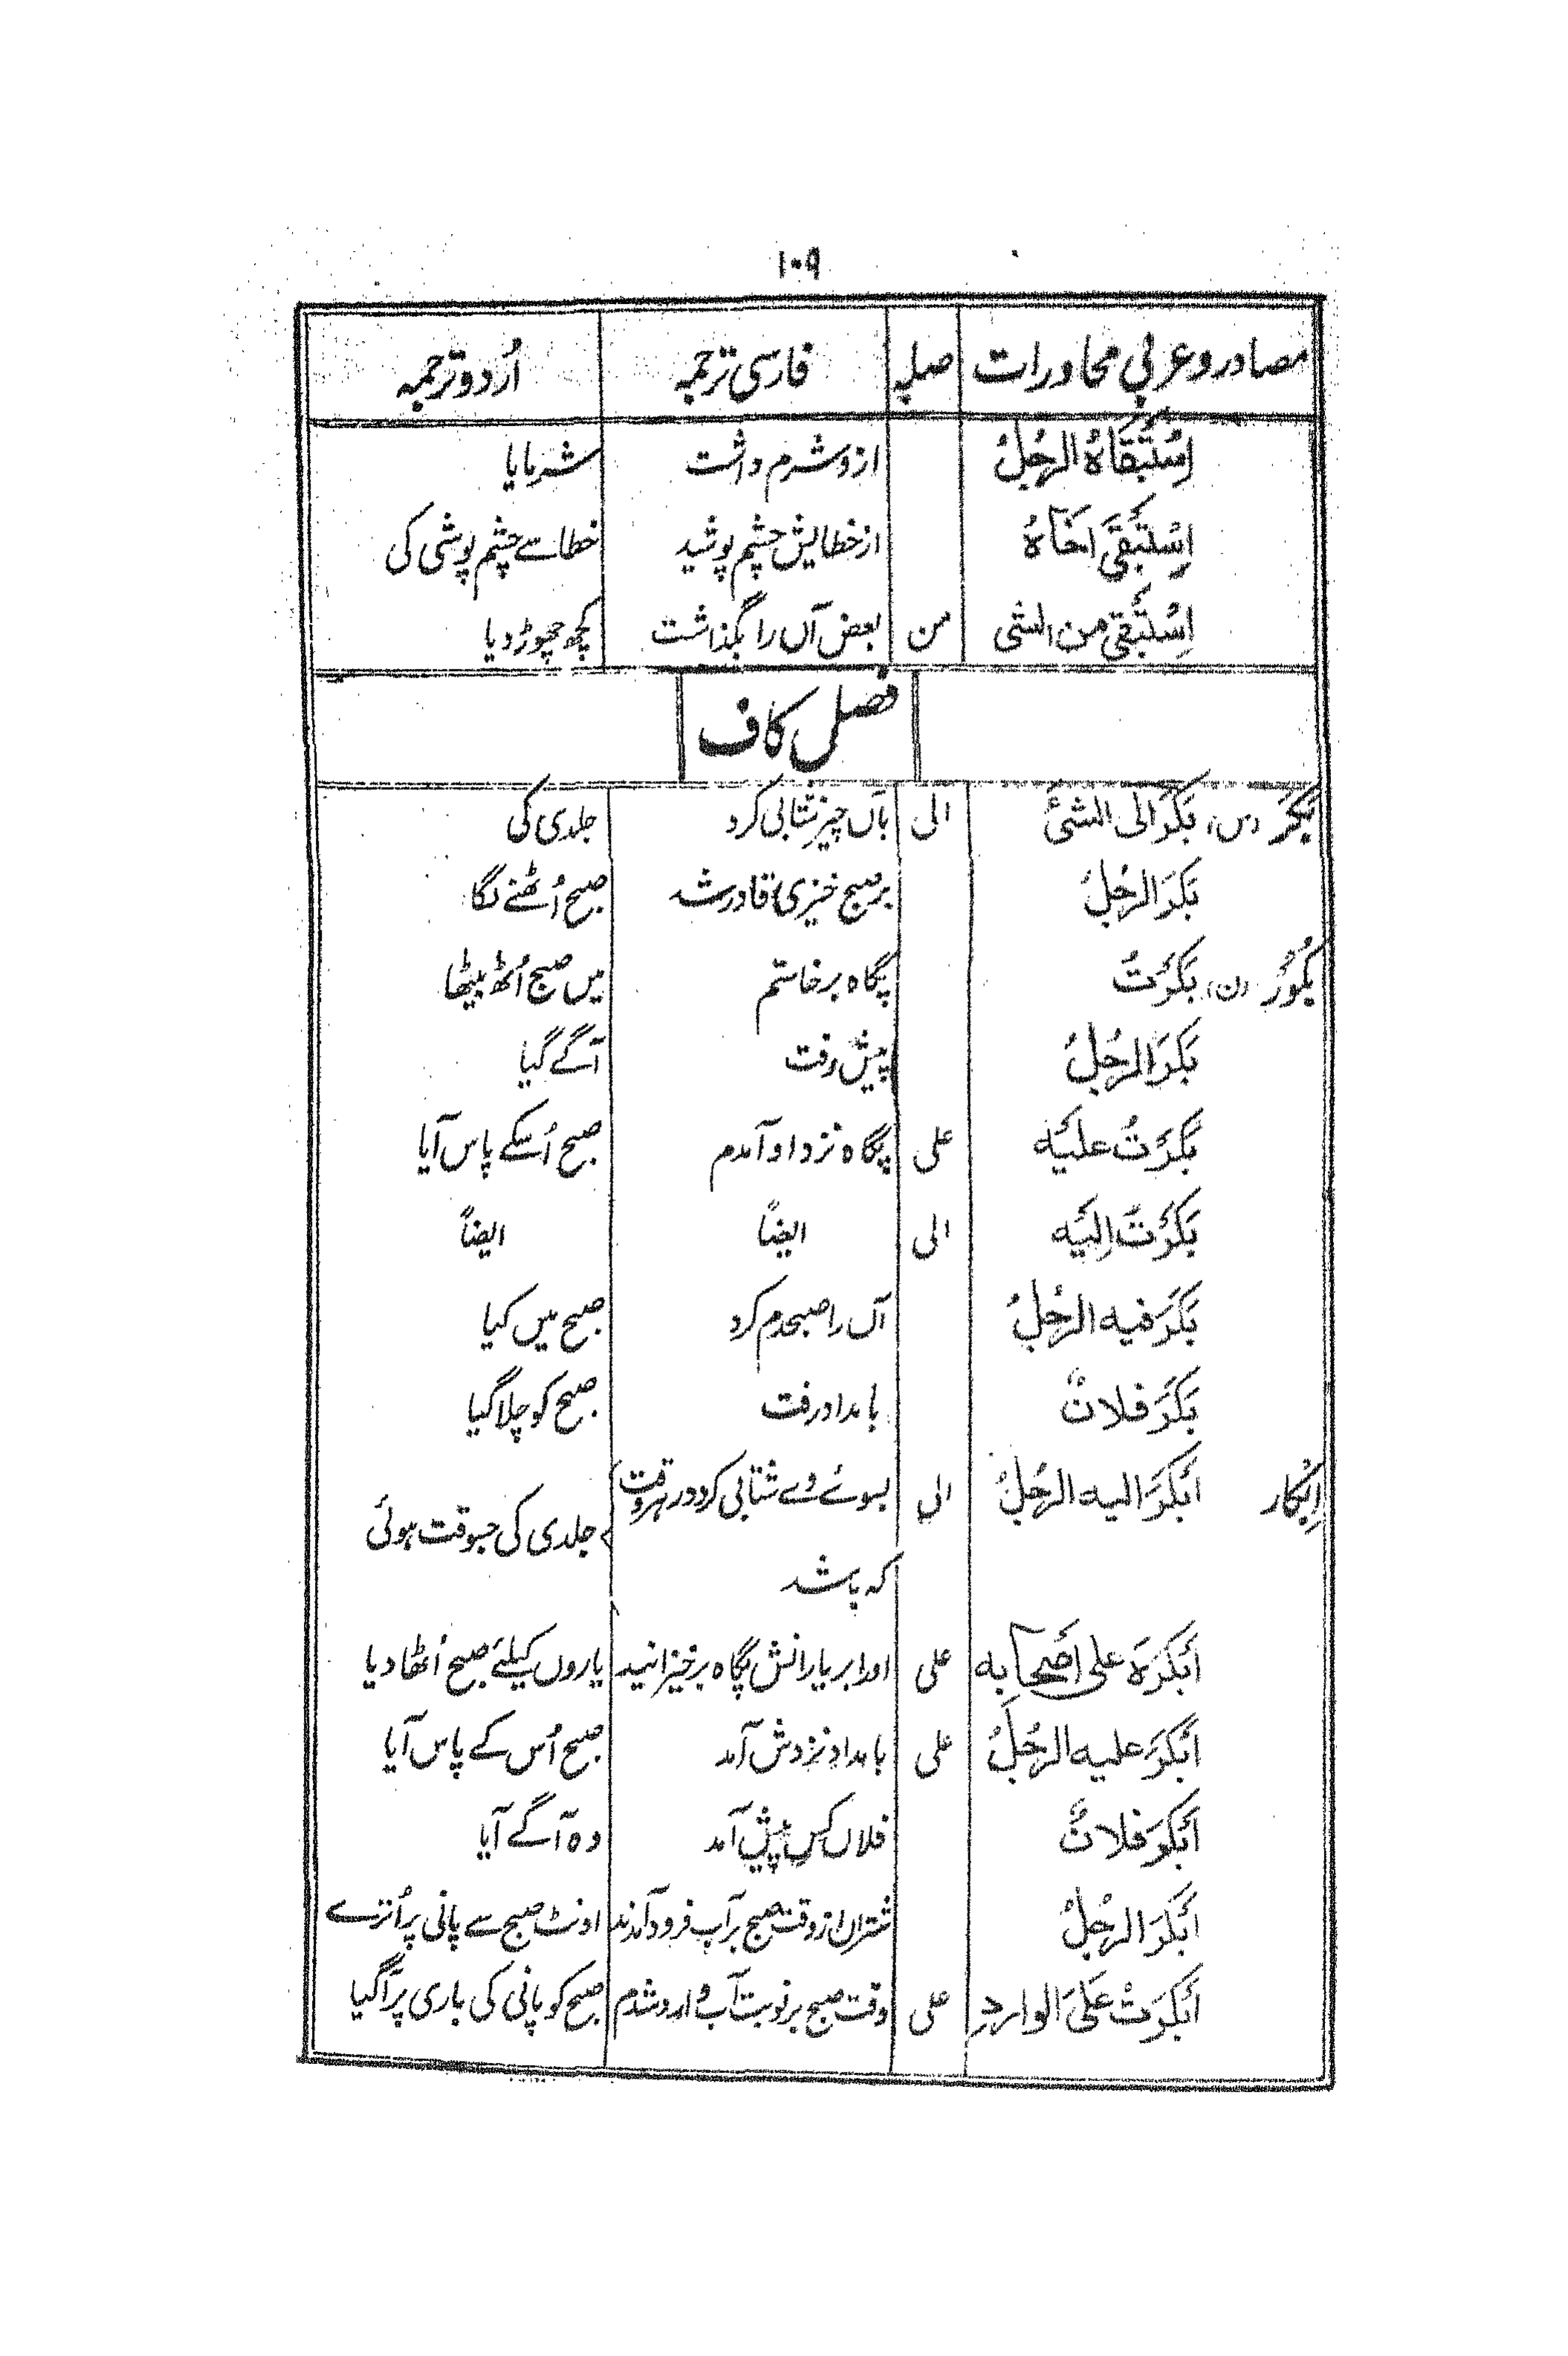 ۱۰۹
مصادر و عربی محاورات صلہ فارسی ترجمہ اُردو ترجمہ
اِسْتَبْقَاہُ الرجُلُ ازو شرم داشت شرمایا
اِسْتَبْقَی اَخَاہُ از خطایش چشم پوشید خطا سے چشم پوشی کی
اِسْتَبْقَی من الشی من بعض آں را بگذاشت کچھ چھوڑ دیا
فصل کاف
بَکَرٌ (س) بَکَرَ الی الشیٔ الی بآں چیز شتابی کرد جلدی کی
بَکَرَ الرجُلُ بر صبح خیزی قادر شد صبح اُٹھنے لگا
بُکُوْرٌ (ن) بَکَرْتُ پگاہ برخاستم میں صبح اُٹھ بیٹھا
بَکَرَ الرجُلُ پیش رفت آگے گیا
بَکَّرْتُ علیْہ علی پگاہ نزد او آمدم صبح اُسکے پاس آیا
بَکَرْتُ اِلَیْہ الی ایضاً ایضاً
بَکَّرَ فیہ الرجُلُ آں را صبحدم کرد صبح میں کیا
بَکَّرَ فلانٌ بامداد رفت صبح کو چلا گیا
اِبْکار اَبْکَرَ الیہ الرجُلُ الی بسوئے وے شتابی کرد در ہر وقت جلدی کی جسوقت ہوئی
کہ باشد
اَبْکَرَہ علی اَصْحابہ علی اورا بر یارانش پگاہ برخیزانید یاروں کیلئے صبح اُٹھا دیا
اَبْکَرَ علیہ الرجُلُ علی بامداد نزدش آمد صبح اُس کے پاس آیا
اَبْکَرَ فلانٌ فلاں کس پیش آمد وہ آگے آیا
اَبْکَرَ الرجُلُ شتران از وقت صبح بر آب فرود آمدند اونٹ صبح سے پانی پر اُترے
اَبْکَرْتُ عَلَی الواردِ علی وقت صبح بر نوبت آب وارد شدم صبح کو پانی کی باری پر آگیا